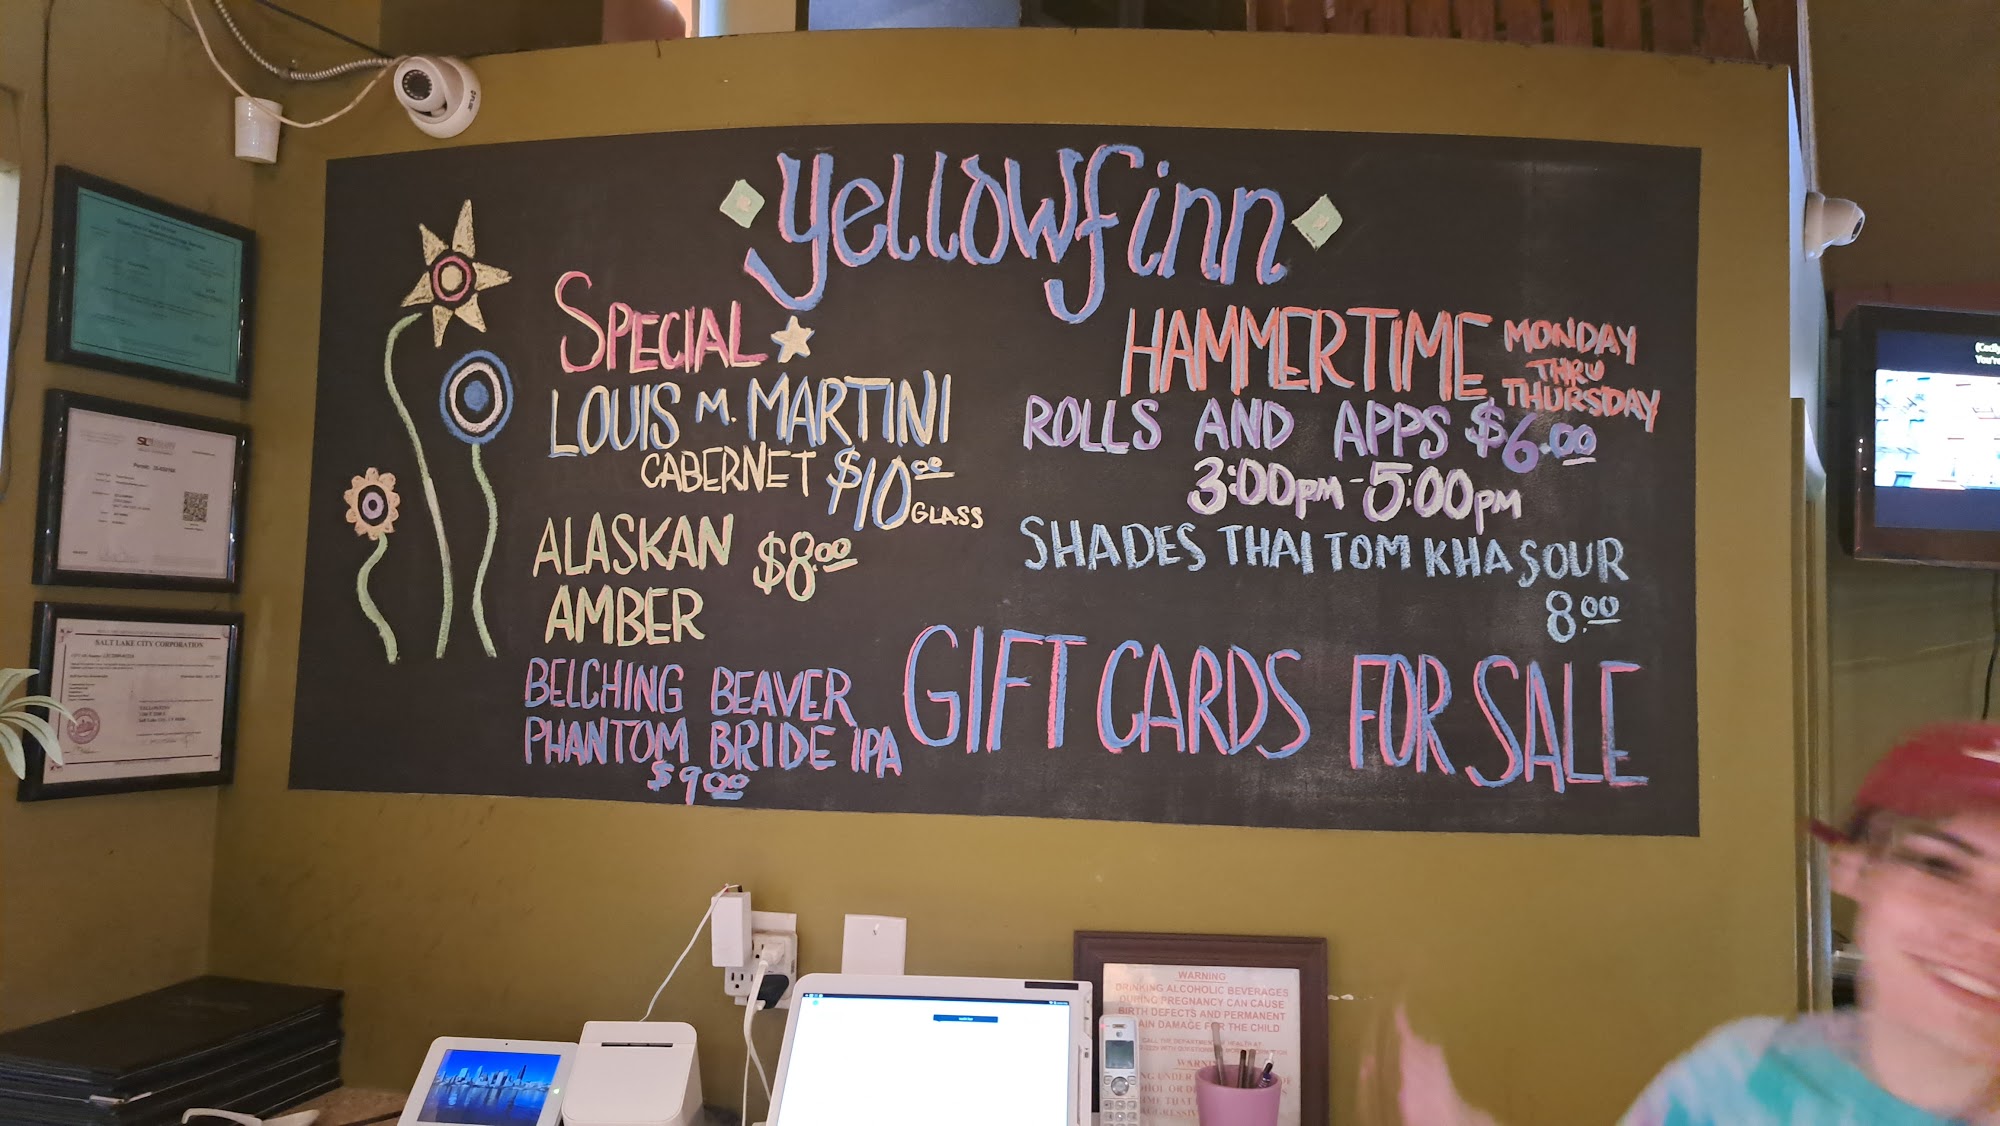 yellowfinn
SPECIAL
LOUIS M. MARTINI
CABERNET $10.00
GLASS
ALASKAN $8.00
AMBER
BELCHING BEAVER
PHANTOM BRIDE IPA
$9.00
HAMMERTIME
MONDAY
THRU
THURSDAY
ROLLS AND APPS $6.00
3:00pm - 5:00pm
SHADES THAI TOM KHA SOUR
8.00
GIFT CARDS FOR SALE
SALT LAKE CITY CORPORATION
WARNING
DRINKING ALCOHOLIC BEVERAGES
DURING PREGNANCY CAN CAUSE
BIRTH DEFECTS AND PERMANENT
DAMAGE FOR THE CHILD